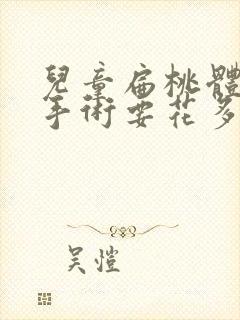 兒童扁桃體
手術要花多
吴愷